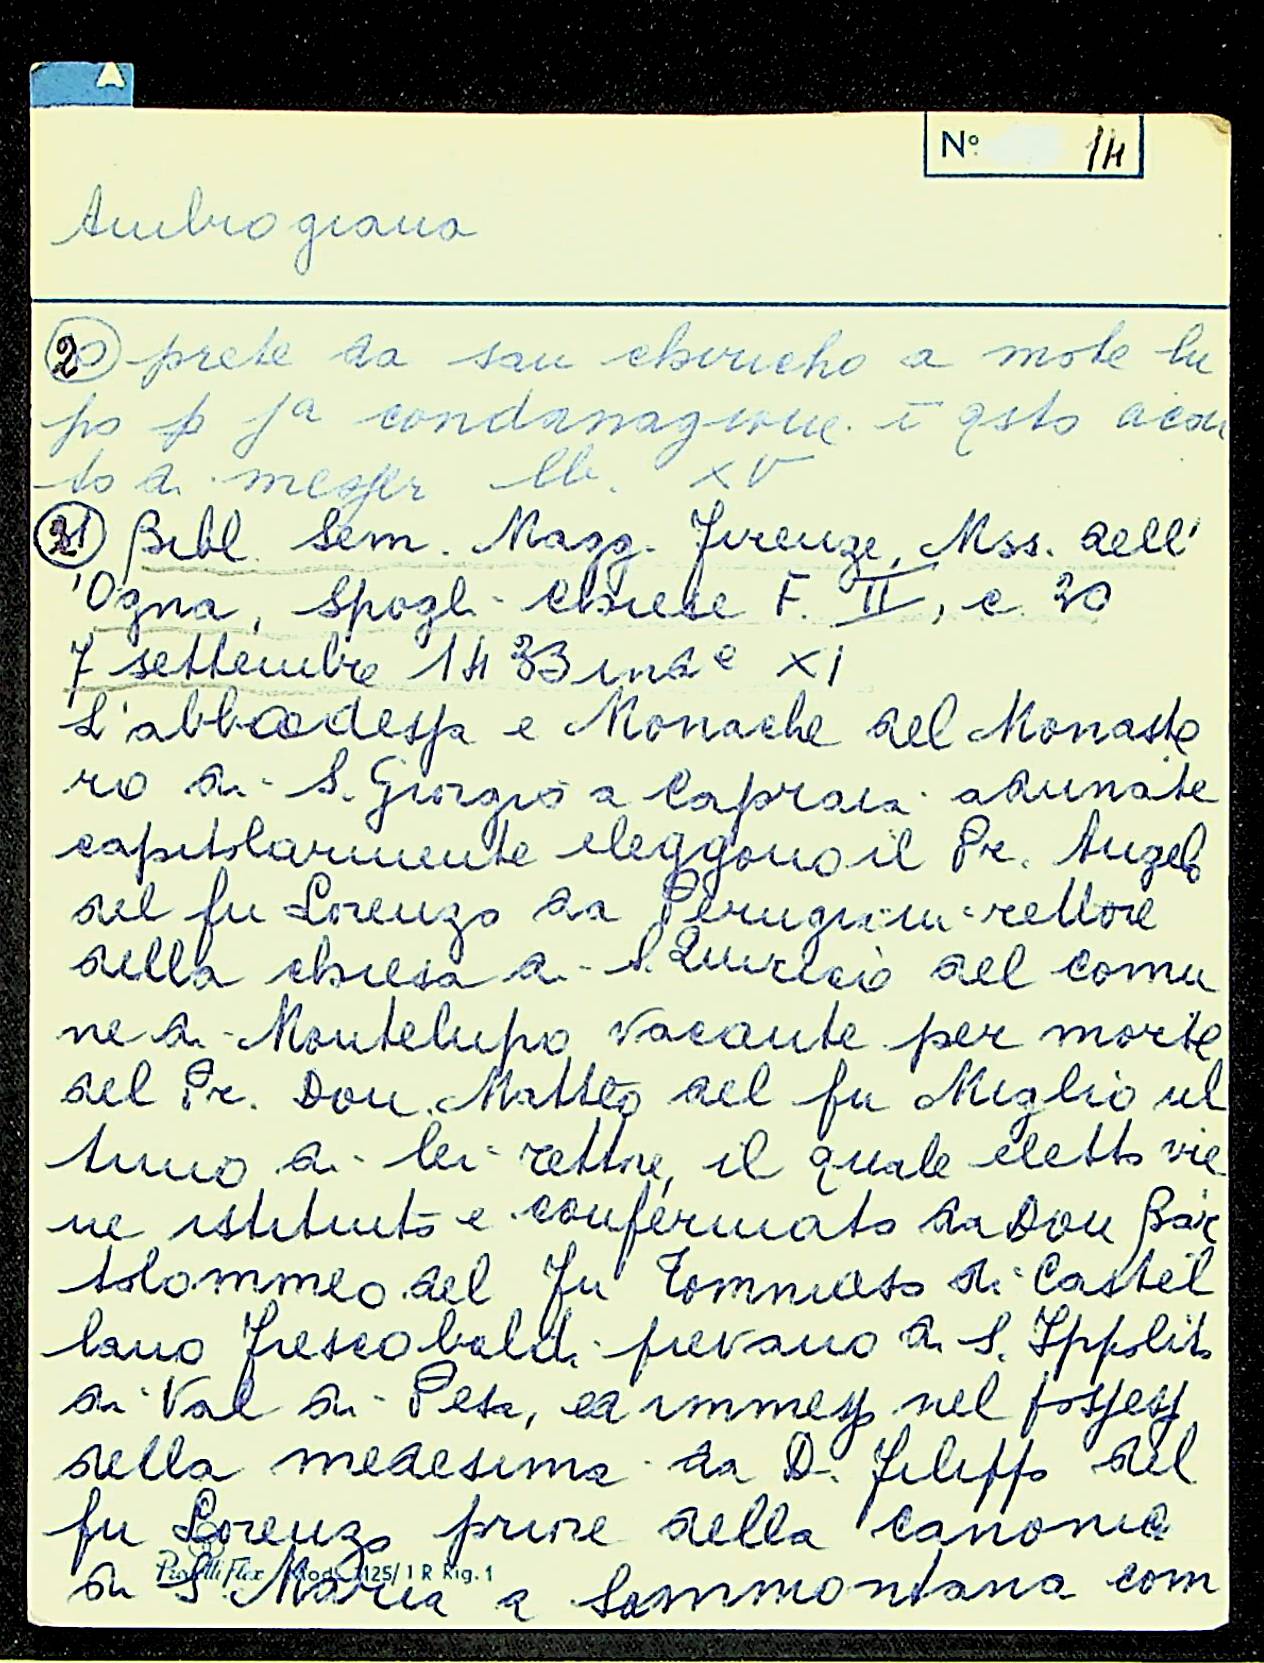 A
N° 14
Ambrogiana
20 prete da san chiricho a mote lu
po p fa condanagione. ī qsto acon
to di messer lb. XV
21 Bibl. Sem. Magg. Firenze, Mss. dell'
'Ogna, Spogli Chiese F. II, c. 30
7 settembre 1433 indᵉ XI
L'abbadessa e Monache del Monaste
ro di S. Giorgio a Capraia adunate
capitolarmente eleggono il Pr. Angelo
del fu Lorenzo da Perugia in rettore
della chiesa di S. Quirico del comu
ne di Montelupo vacante per morte
del Pr. Don Matteo del fu Miglio ul
timo di lei rettore, il quale eletto vie
ne istituito e confermato da Don Bar
tolommeo del fu Tommaso di Castel
lano Frescobaldi pievano di S. Ippolito
di Val di Pesa, ed immesso nel possesso
della medesima da D. Filippo del
fu Lorenzo priore della canonica
di S. Maria a Sammontana com
Mod. 125/1 R Rig. 1